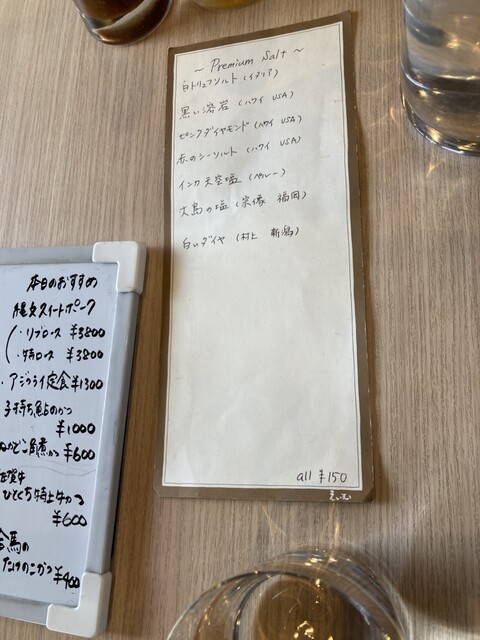 ~ Premium Salt ~
白トリュフソルト (イタリア)
黒い溶岩 (ハワイ USA)
ピンクダイヤモンド (ハワイ USA)
赤のシーソルト (ハワイ USA)
インカ天空塩 (ペルー)
大島の塩 (宗像 福岡)
白いダイヤ (村上 新潟)
all ¥150
本日のおすすめ
縄文スイートポーク
・リブロース ¥3800
・特ロース ¥3800
・アジフライ定食 ¥1300
子持ち鮎のかつ
¥1000
ぬかどこ角煮かつ ¥600
佐賀牛
ひとくち特上牛かつ
¥600
合馬の
たけのこかつ ¥400